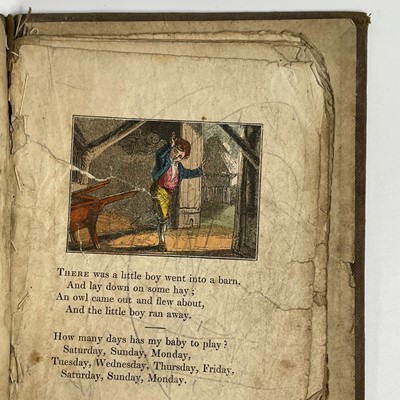 THERE was a little boy went into a barn,
And lay down on some hay;
An owl came out and flew about,
And the little boy ran away.
How many days has my baby to play?
Saturday, Sunday, Monday,
Tuesday, Wednesday, Thursday, Friday,
Saturday, Sunday, Monday.